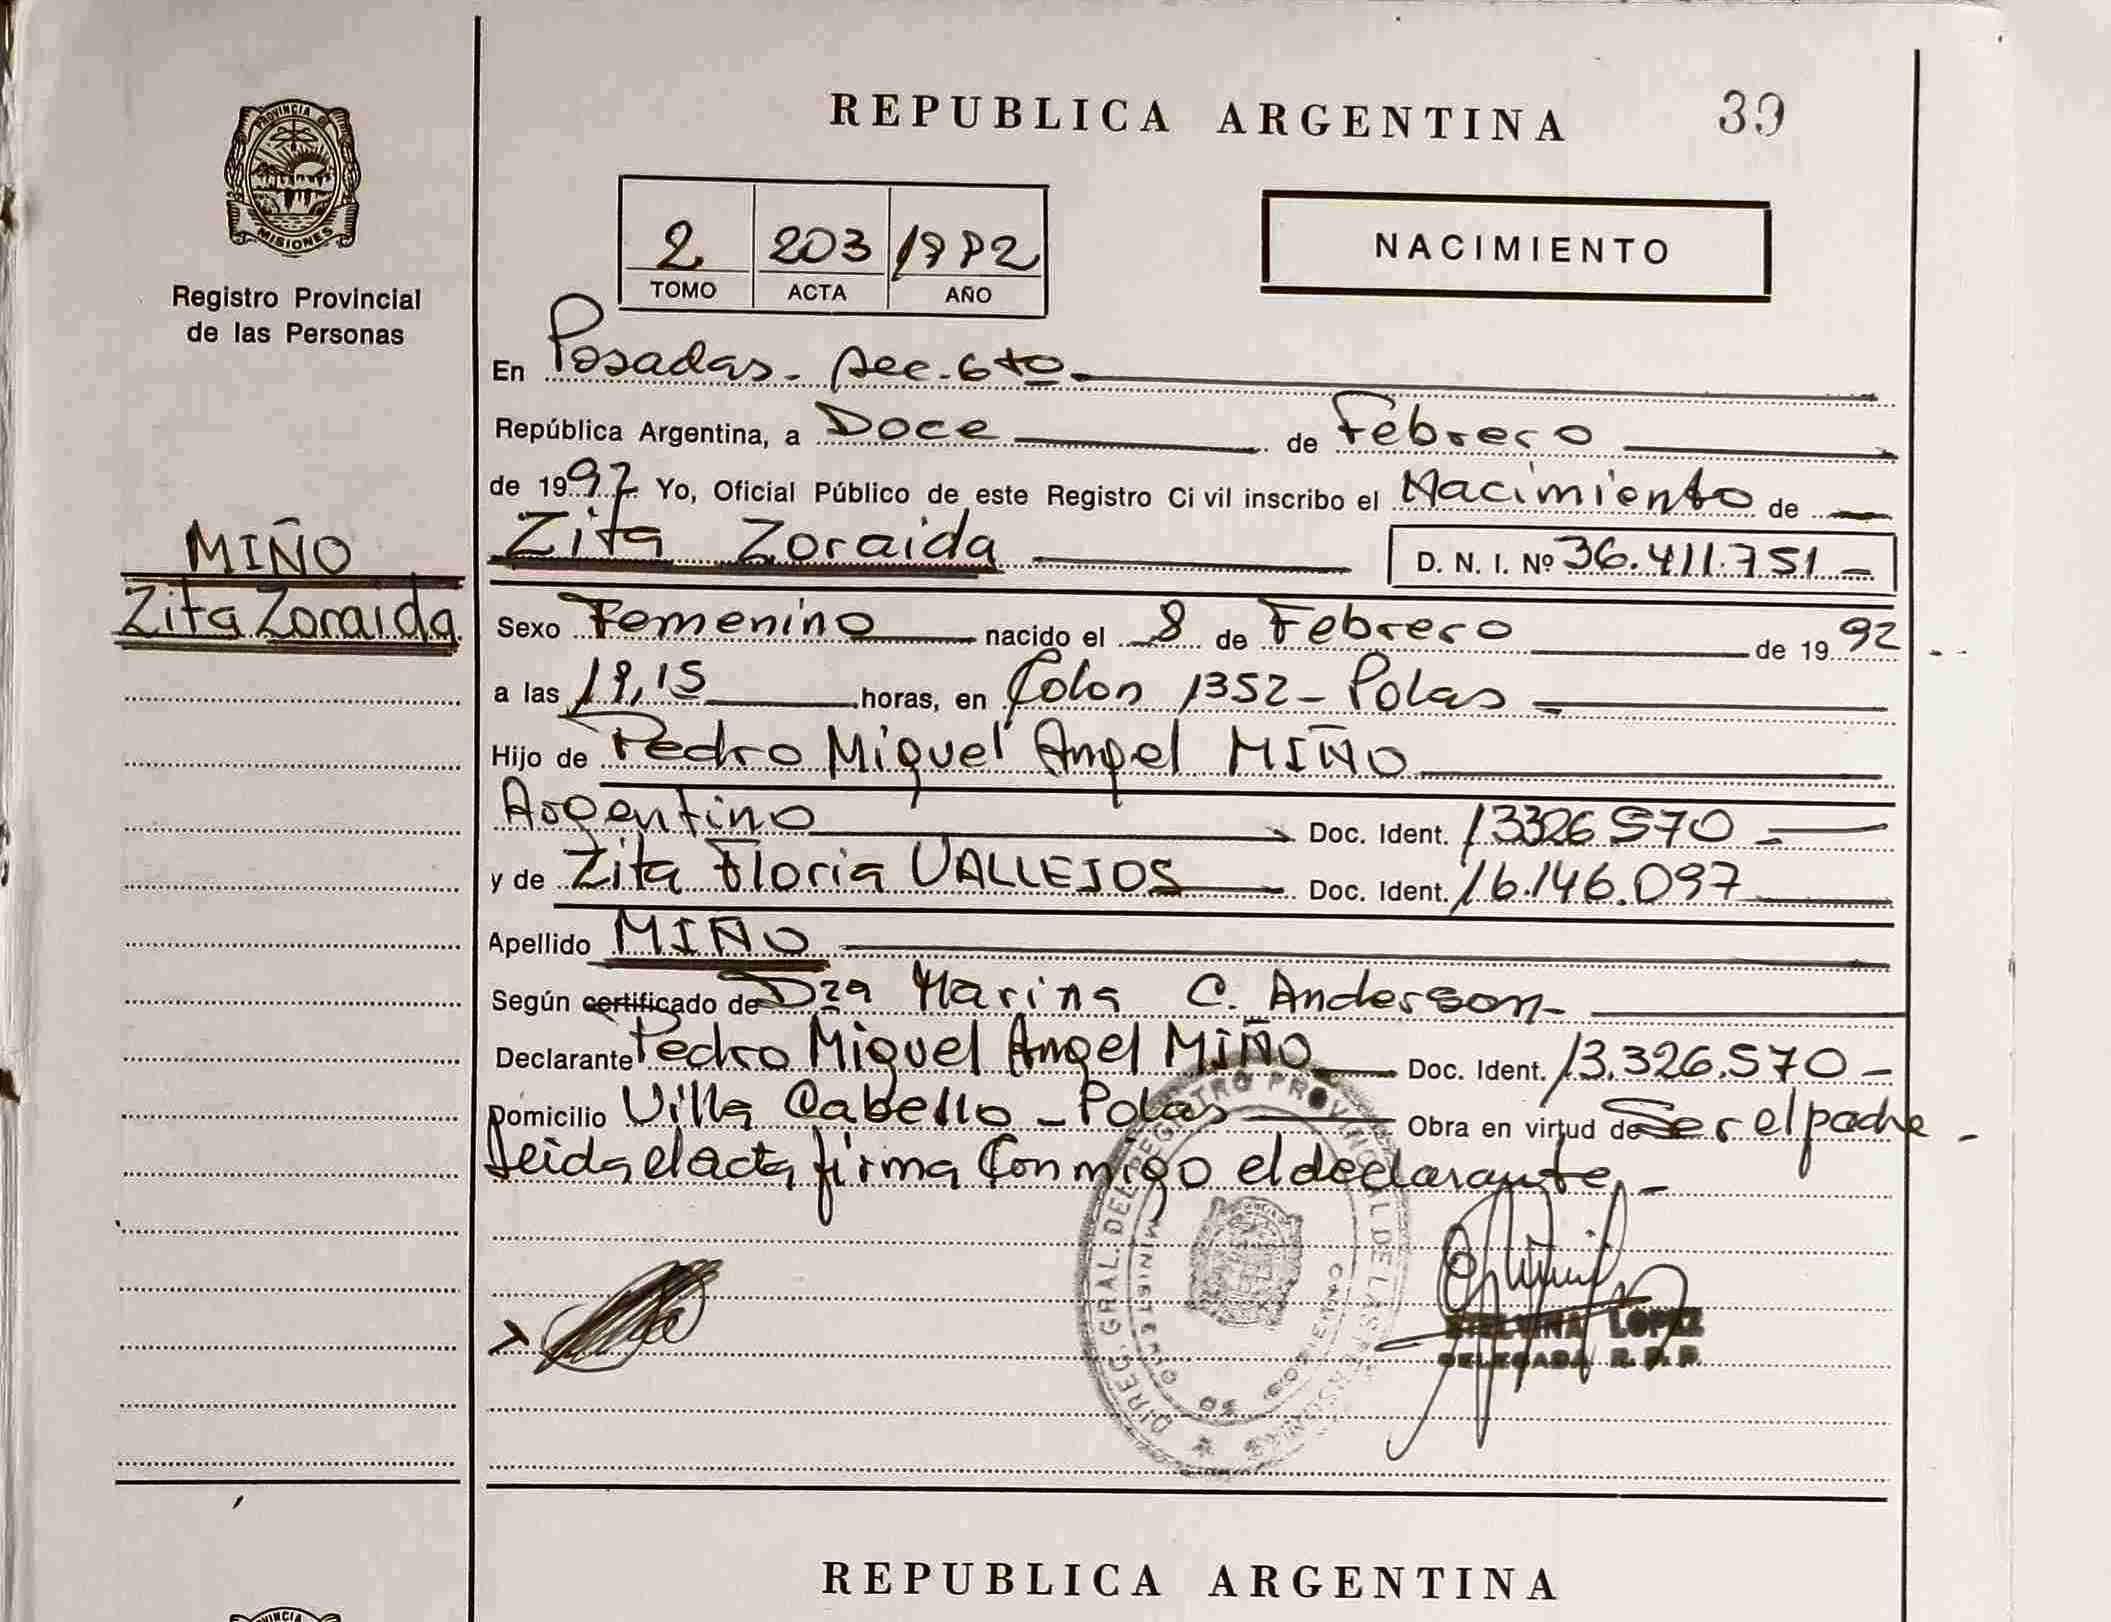 REPUBLICA ARGENTINA
39
PROVINCIA DE
MISIONES
Registro Provincial
de las Personas
2 203 1992
TOMO ACTA AÑO
NACIMIENTO
En Posadas - sec. 6to
República Argentina, a Doce de Febrero
de 1992. Yo, Oficial Público de este Registro Civil inscribo el Nacimiento de
Zita Zoraida D. N. I. Nº 36.411.751 -
MIÑO
Zita Zoraida
Sexo Femenino nacido el 8 de Febrero de 1992
a las 19,15 horas, en Colon 1352 - Pdas
Hijo de Pedro Miguel Angel MIÑO
Argentino Doc. Ident. 13326570
y de Zita Floria VALLEJOS Doc. Ident. 16.146.097
Apellido MIÑO
Según certificado de Dra Marina C. Anderson -
Declarante Pedro Miguel Angel MIÑO Doc. Ident. 13.326.570 -
Domicilio Villa Cabello - Pdas Obra en virtud de Ser el padre -
Leida el acta firma conmigo el declarante -
DIREC. GRAL. DEL REGISTRO PROVINCIAL DE LAS PERSONAS
MINIST. DE GOBIERNO
LOPEZ
DELEGADA R. P. P.
REPUBLICA ARGENTINA